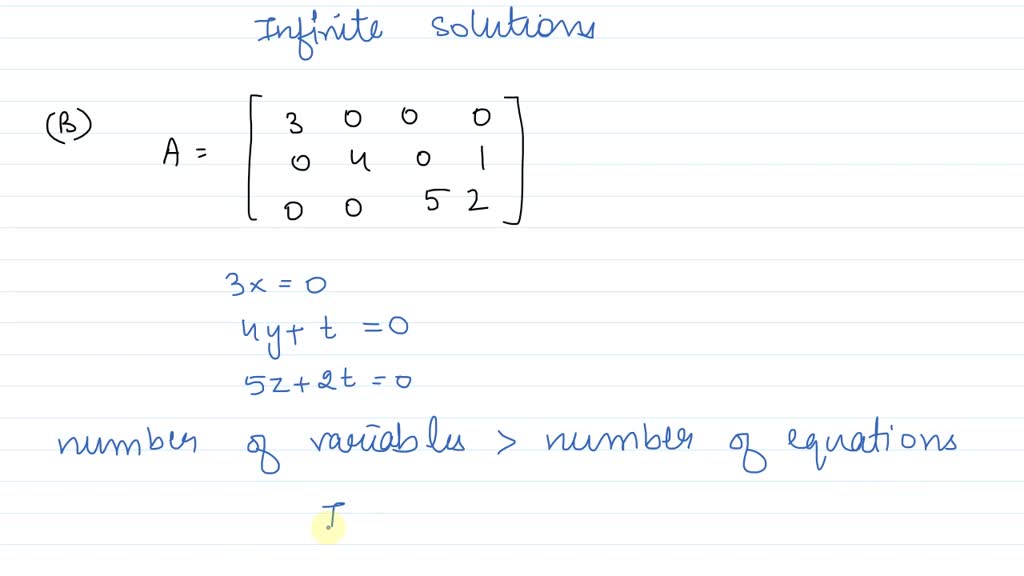 Infinite solutions
(B) A = [ 3 0 0 0
0 4 0 1
0 0 5 2 ]
3x = 0
4y + t = 0
5z + 2t = 0
number of variables > number of equations
I